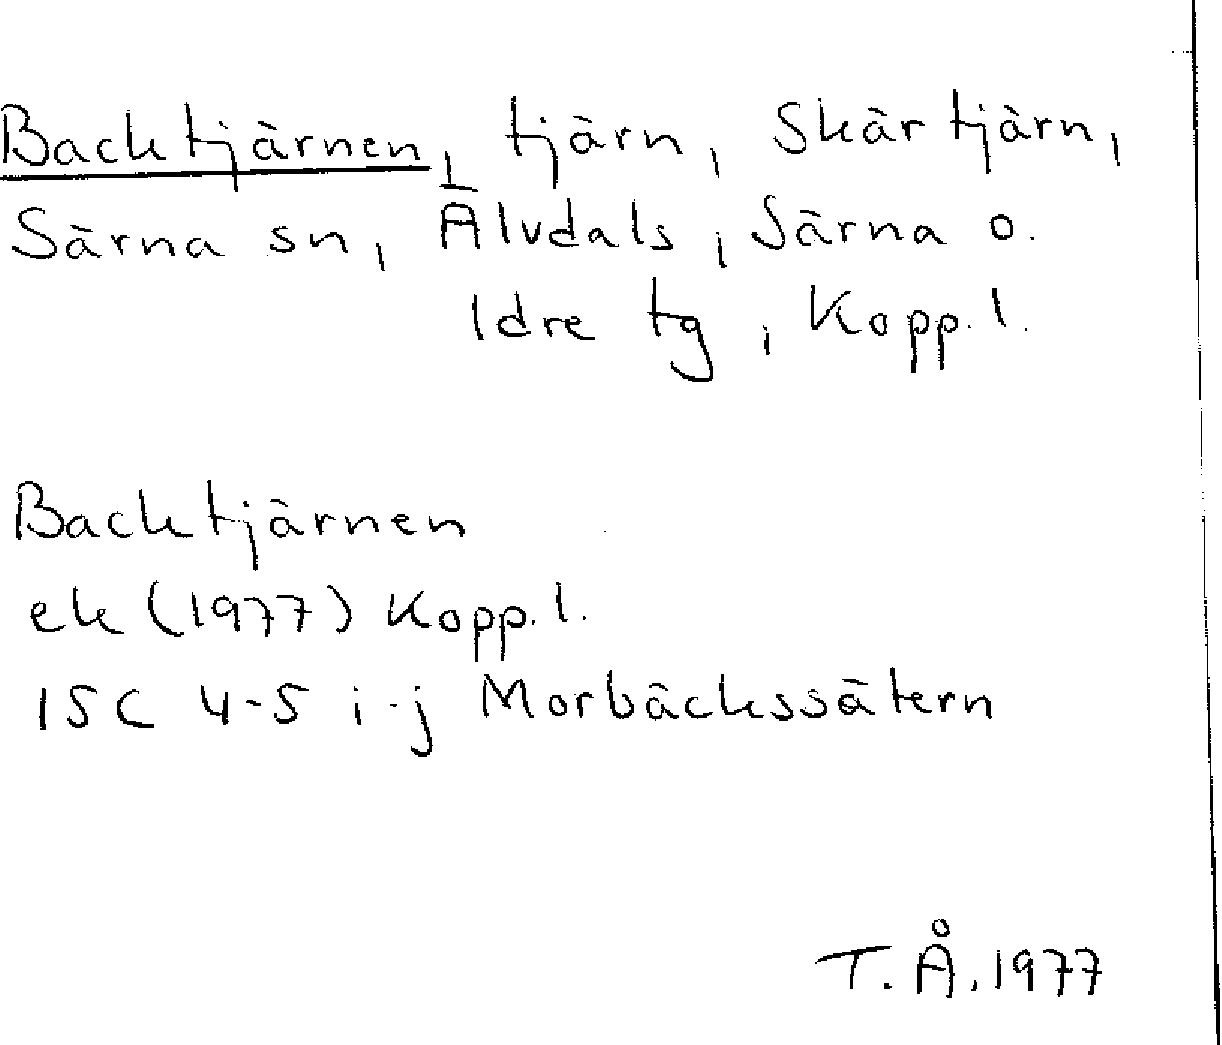 Backtjärnen, tjärn, Skärtjärn,
Särna sn, Älvdals, Särna o.
Idre tg, Kopp. l.
Backtjärnen
ek (1977) Kopp. l.
15C 4-5 i-j Morbäckssätern
T. Å. 1977